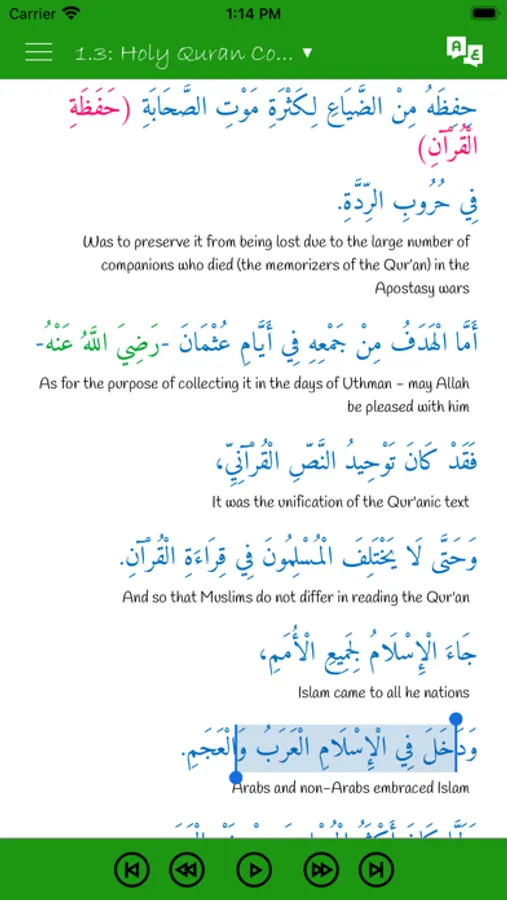 Carrier 1:14 PM
1.3: Holy Quran Co... ▼
حِفِظَهُ مِنْ الضَّيَاعِ لِكَثْرَةِ مَوْتِ الصَّحَابَةِ (حَفَظَةِ
الْقُرْآنِ)
فِي حُرُوبِ الرِّدَّةِ.
Was to preserve it from being lost due to the large number of
companions who died (the memorizers of the Qur'an) in the
Apostasy wars
أَمَّا الْهَدَفُ مِنْ جَمْعِهِ فِي أَيَّامِ عُثْمَانَ -رَضِيَ اللَّهُ عَنْهُ-
As for the purpose of collecting it in the days of Uthman - may Allah
be pleased with him
فَقَدْ كَانَ تَوْحِيدُ النَّصِّ الْقُرْآنِيِّ،
It was the unification of the Qur'anic text
وَحَتَّى لَا يَخْتَلِفَ الْمُسْلِمُونَ فِي قِرَاءَةِ الْقُرْآنِ.
And so that Muslims do not differ in reading the Qur'an
جَاءَ الْإِسْلَامُ لِجَمِيعِ الْأُمَمِ،
Islam came to all he nations
وَدَخَلَ فِي الْإِسْلَامِ الْعَرَبُ وَالْعَجَمِ.
Arabs and non-Arabs embraced Islam